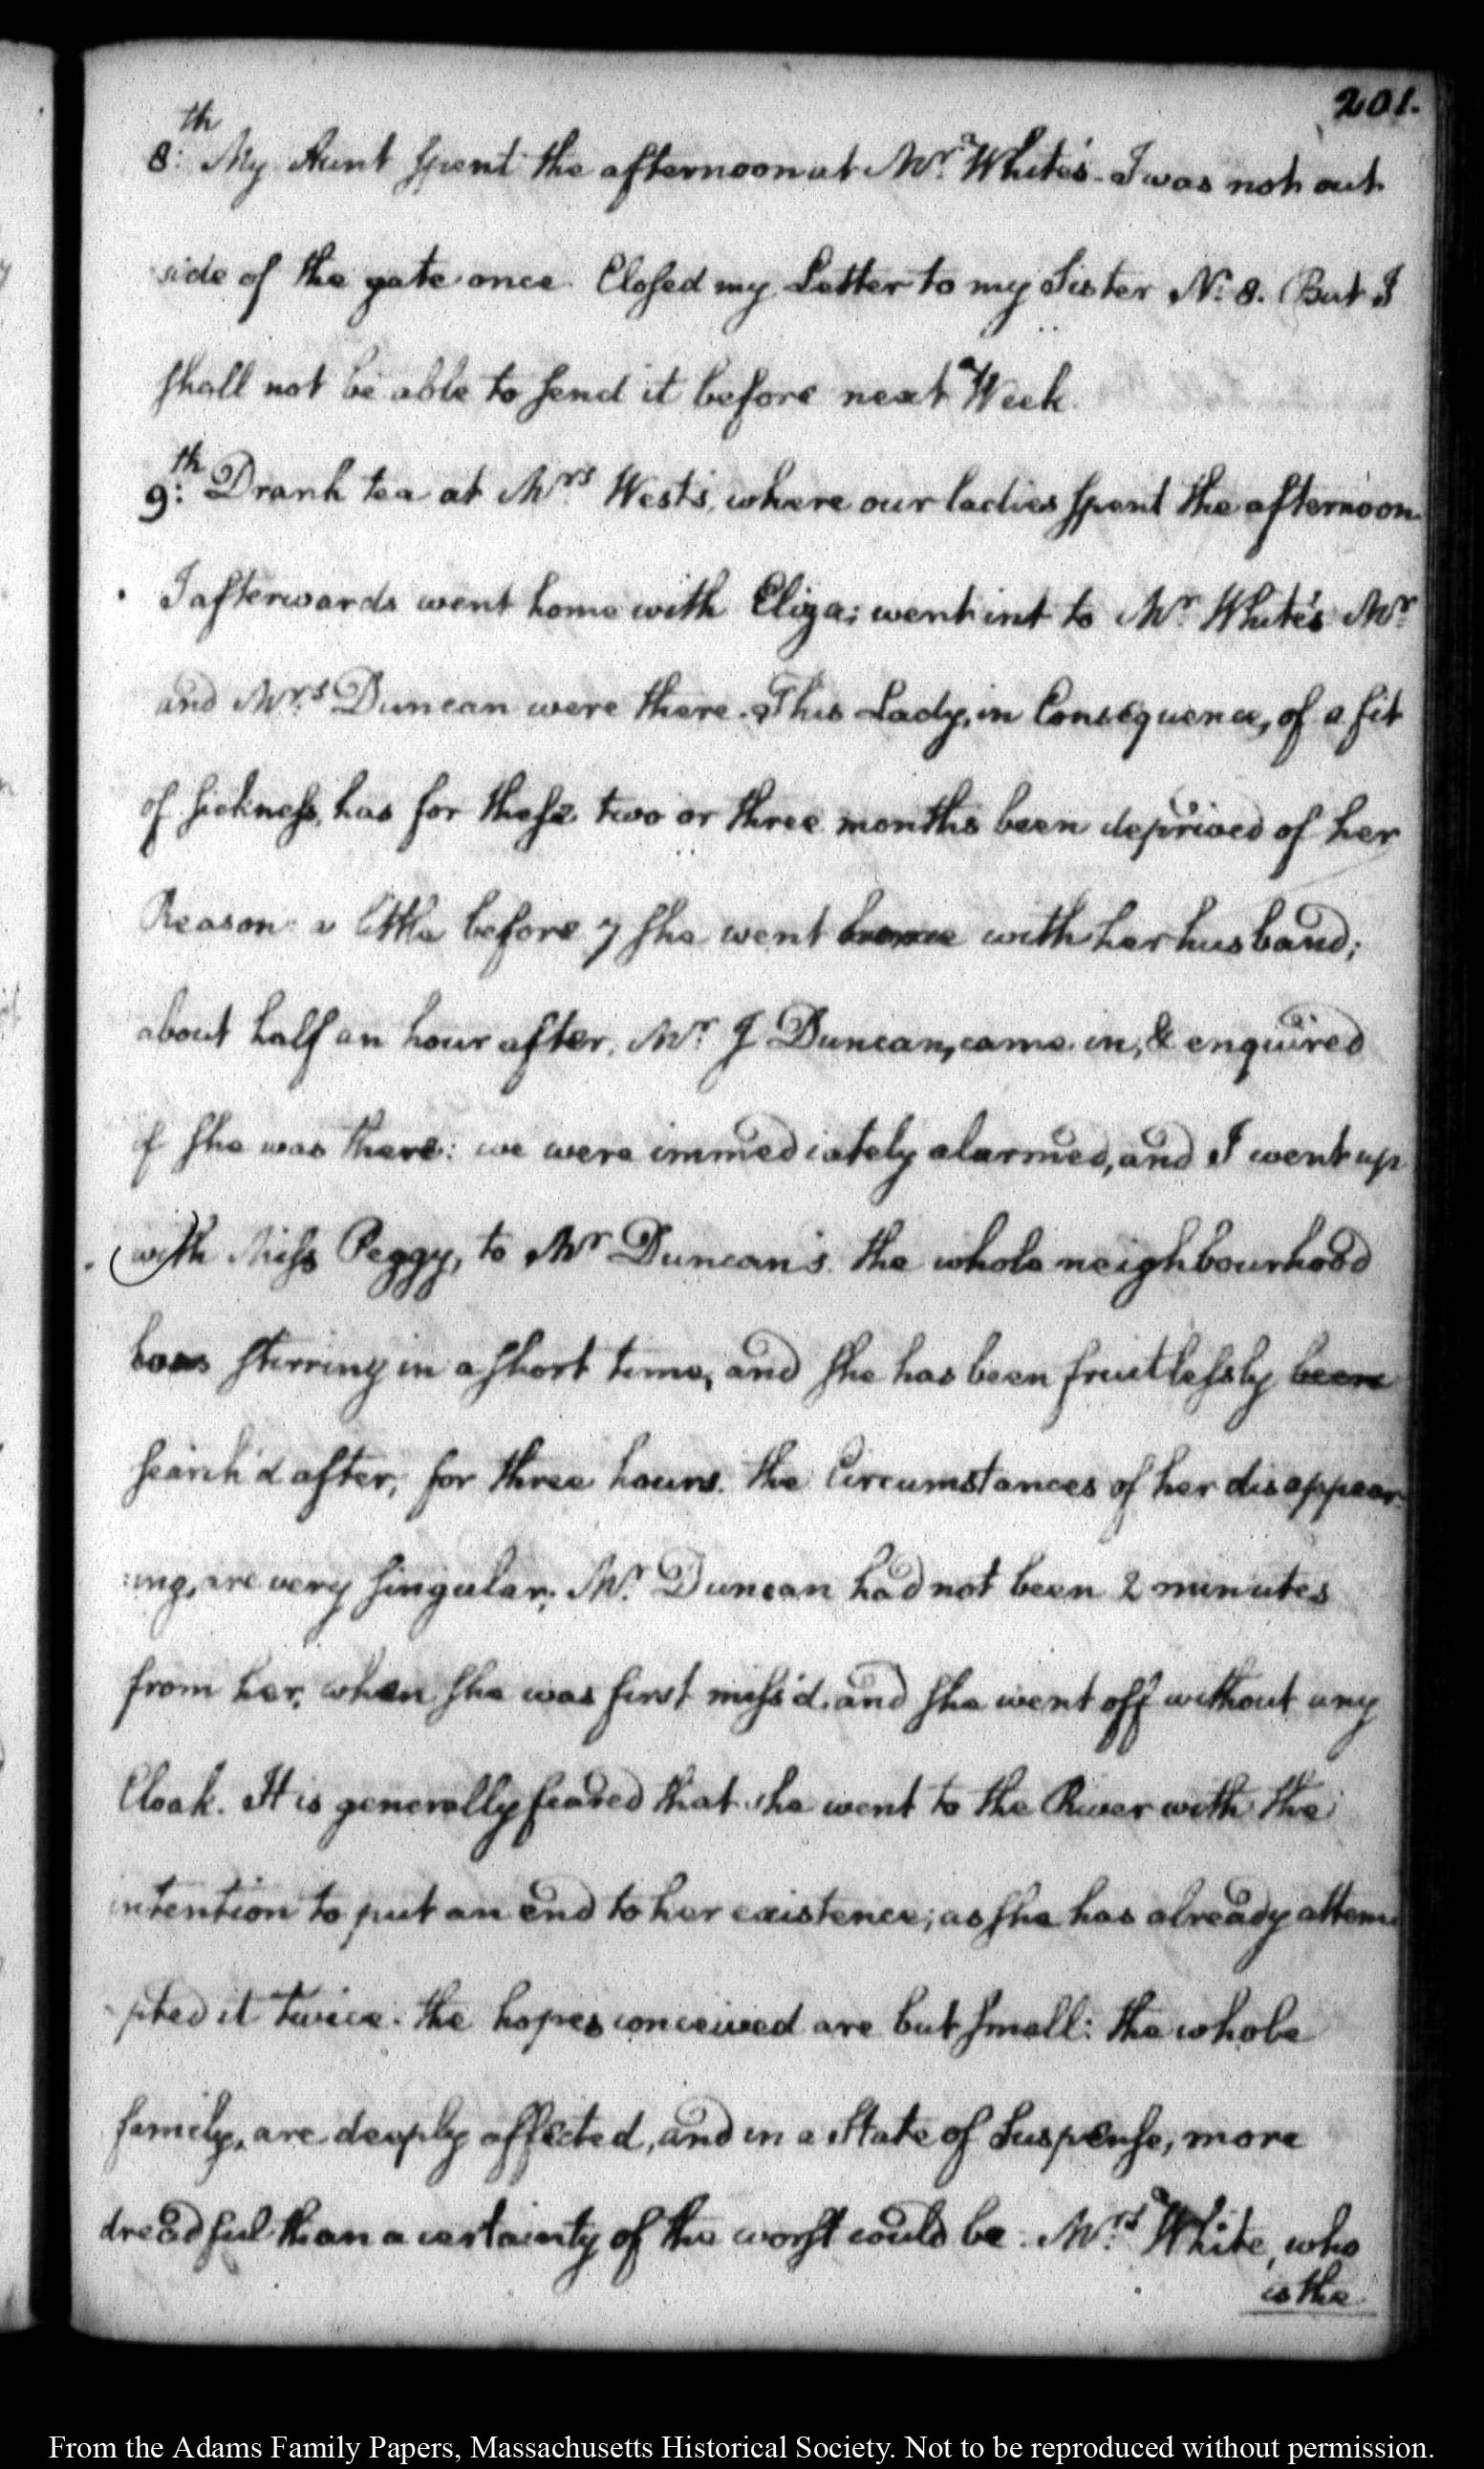 201.
8:th My Aunt spent the afternoon at Mr. White's. I was not out
side of the gate once. Closed my Letter to my Sister N: 8. (But I
shall not be able to send it before next Week.
9:th Drank tea at Mrs. West's, where our ladies spent the afternoon.
I afterwards went home with Eliza; went int to Mr. White's Mr.
and Mrs. Duncan were there. This Lady, in Consequence, of a fit
of sickness, has for these two or three months been deprived of her
Reason: a little before 7 she went home with her husband;
about half an hour after, Mr. J Duncan, came in, & enquired
if she was there: we were immediately alarmed, and I went up
with Miss Peggy, to Mr. Duncan's. the whole neighbourhood
was stirring in a short time, and she has been fruitlessly been
search'd after, for three hours. the Circumstances of her disappear-
:ing, are very singular; Mr. Duncan had not been 2 minutes
from her, when she was first miss'd. and she went off without any
Cloak. It is generally feared that she went to the River with the
intention to put an end to her existence; as she has already attem
-pted it twice. the hopes conceived are but small: the whole
family, are deeply affected, and in a State of Suspense, more
dreadful than a certainty of the worst could be. Mrs. White, who
is the
From the Adams Family Papers, Massachusetts Historical Society. Not to be reproduced without permission.